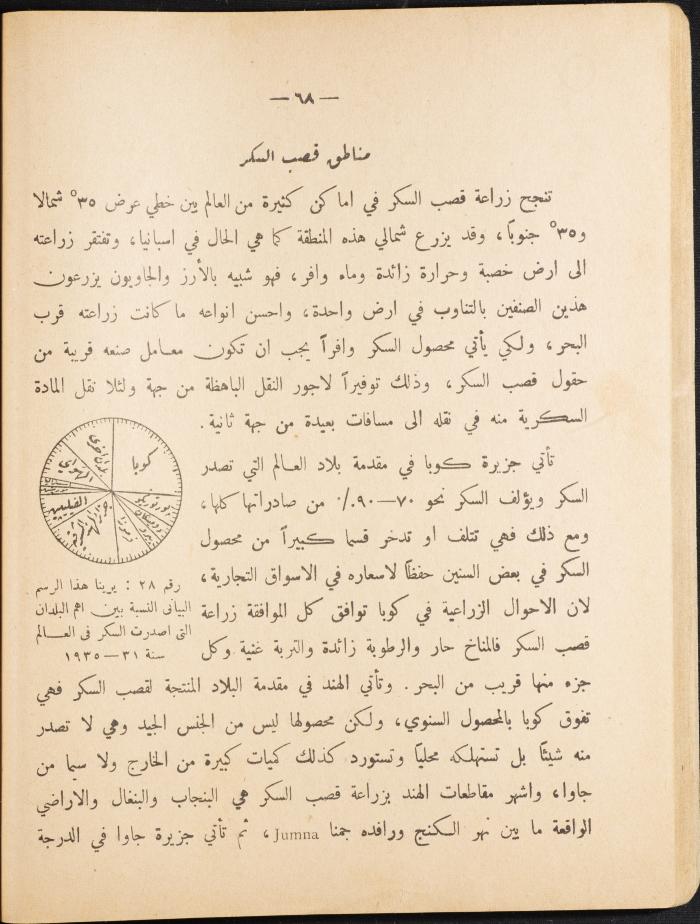 — ٦٨ —
مناطق قصب السكر
تنجح زراعة قصب السكر في اماكن كثيرة من العالم بين خطي عرض ٣٥° شمالا
و٣٥° جنوباً، وقد يزرع شمالي هذه المنطقة كما هي الحال في اسبانيا، وتفتقر زراعته
الى ارض خصبة وحرارة زائدة وماء وافر، فهو شبيه بالأرز والجاويون يزرعون
هذين الصنفين بالتناوب في ارض واحدة، واحسن انواعه ما كانت زراعته قرب
البحر، ولكي يأتي محصول السكر وافراً يجب ان تكون معامل صنعه قريبة من
حقول قصب السكر، وذلك توفيراً لاجور النقل الباهظة من جهة ولئلا تقل المادة
السكرية منه في نقله الى مسافات بعيدة من جهة ثانية.
تأتي جزيرة كوبا في مقدمة بلاد العالم التي تصدر
السكر ويؤلف السكر نحو ٧٠—٩٠٪ من صادراتها كلها،
ومع ذلك فهي تتلف او تدخر قسما كبيراً من محصول
السكر في بعض السنين حفظاً لاسعاره في الاسواق التجارية،
لان الاحوال الزراعية في كوبا توافق كل الموافقة زراعة
قصب السكر فالمناخ حار والرطوبة زائدة والتربة غنية وكل
جزء منها قريب من البحر. وتأتي الهند في مقدمة البلاد المنتجة لقصب السكر فهي
تفوق كوبا بالمحصول السنوي، ولكن محصولها ليس من الجنس الجيد وهي لا تصدر
منه شيئاً بل تستهلكه محلياً وتستورد كذلك كميات كبيرة من الخارج ولا سيما من
جاوا، واشهر مقاطعات الهند بزراعة قصب السكر هي البنجاب والبنغال والاراضي
الواقعة ما بين نهر الكنج ورافده جمنا Jumna، ثم تأتي جزيرة جاوا في الدرجة
كوبا
بلدان اخرى
الهند الهولندية
الفيليبين
بورتوريكو
رقم ٢٨ : يرينا هذا الرسم
البياني النسبة بين اهم البلدان
التي اصدرت السكر في العالم
سنة ٣١—١٩٣٥